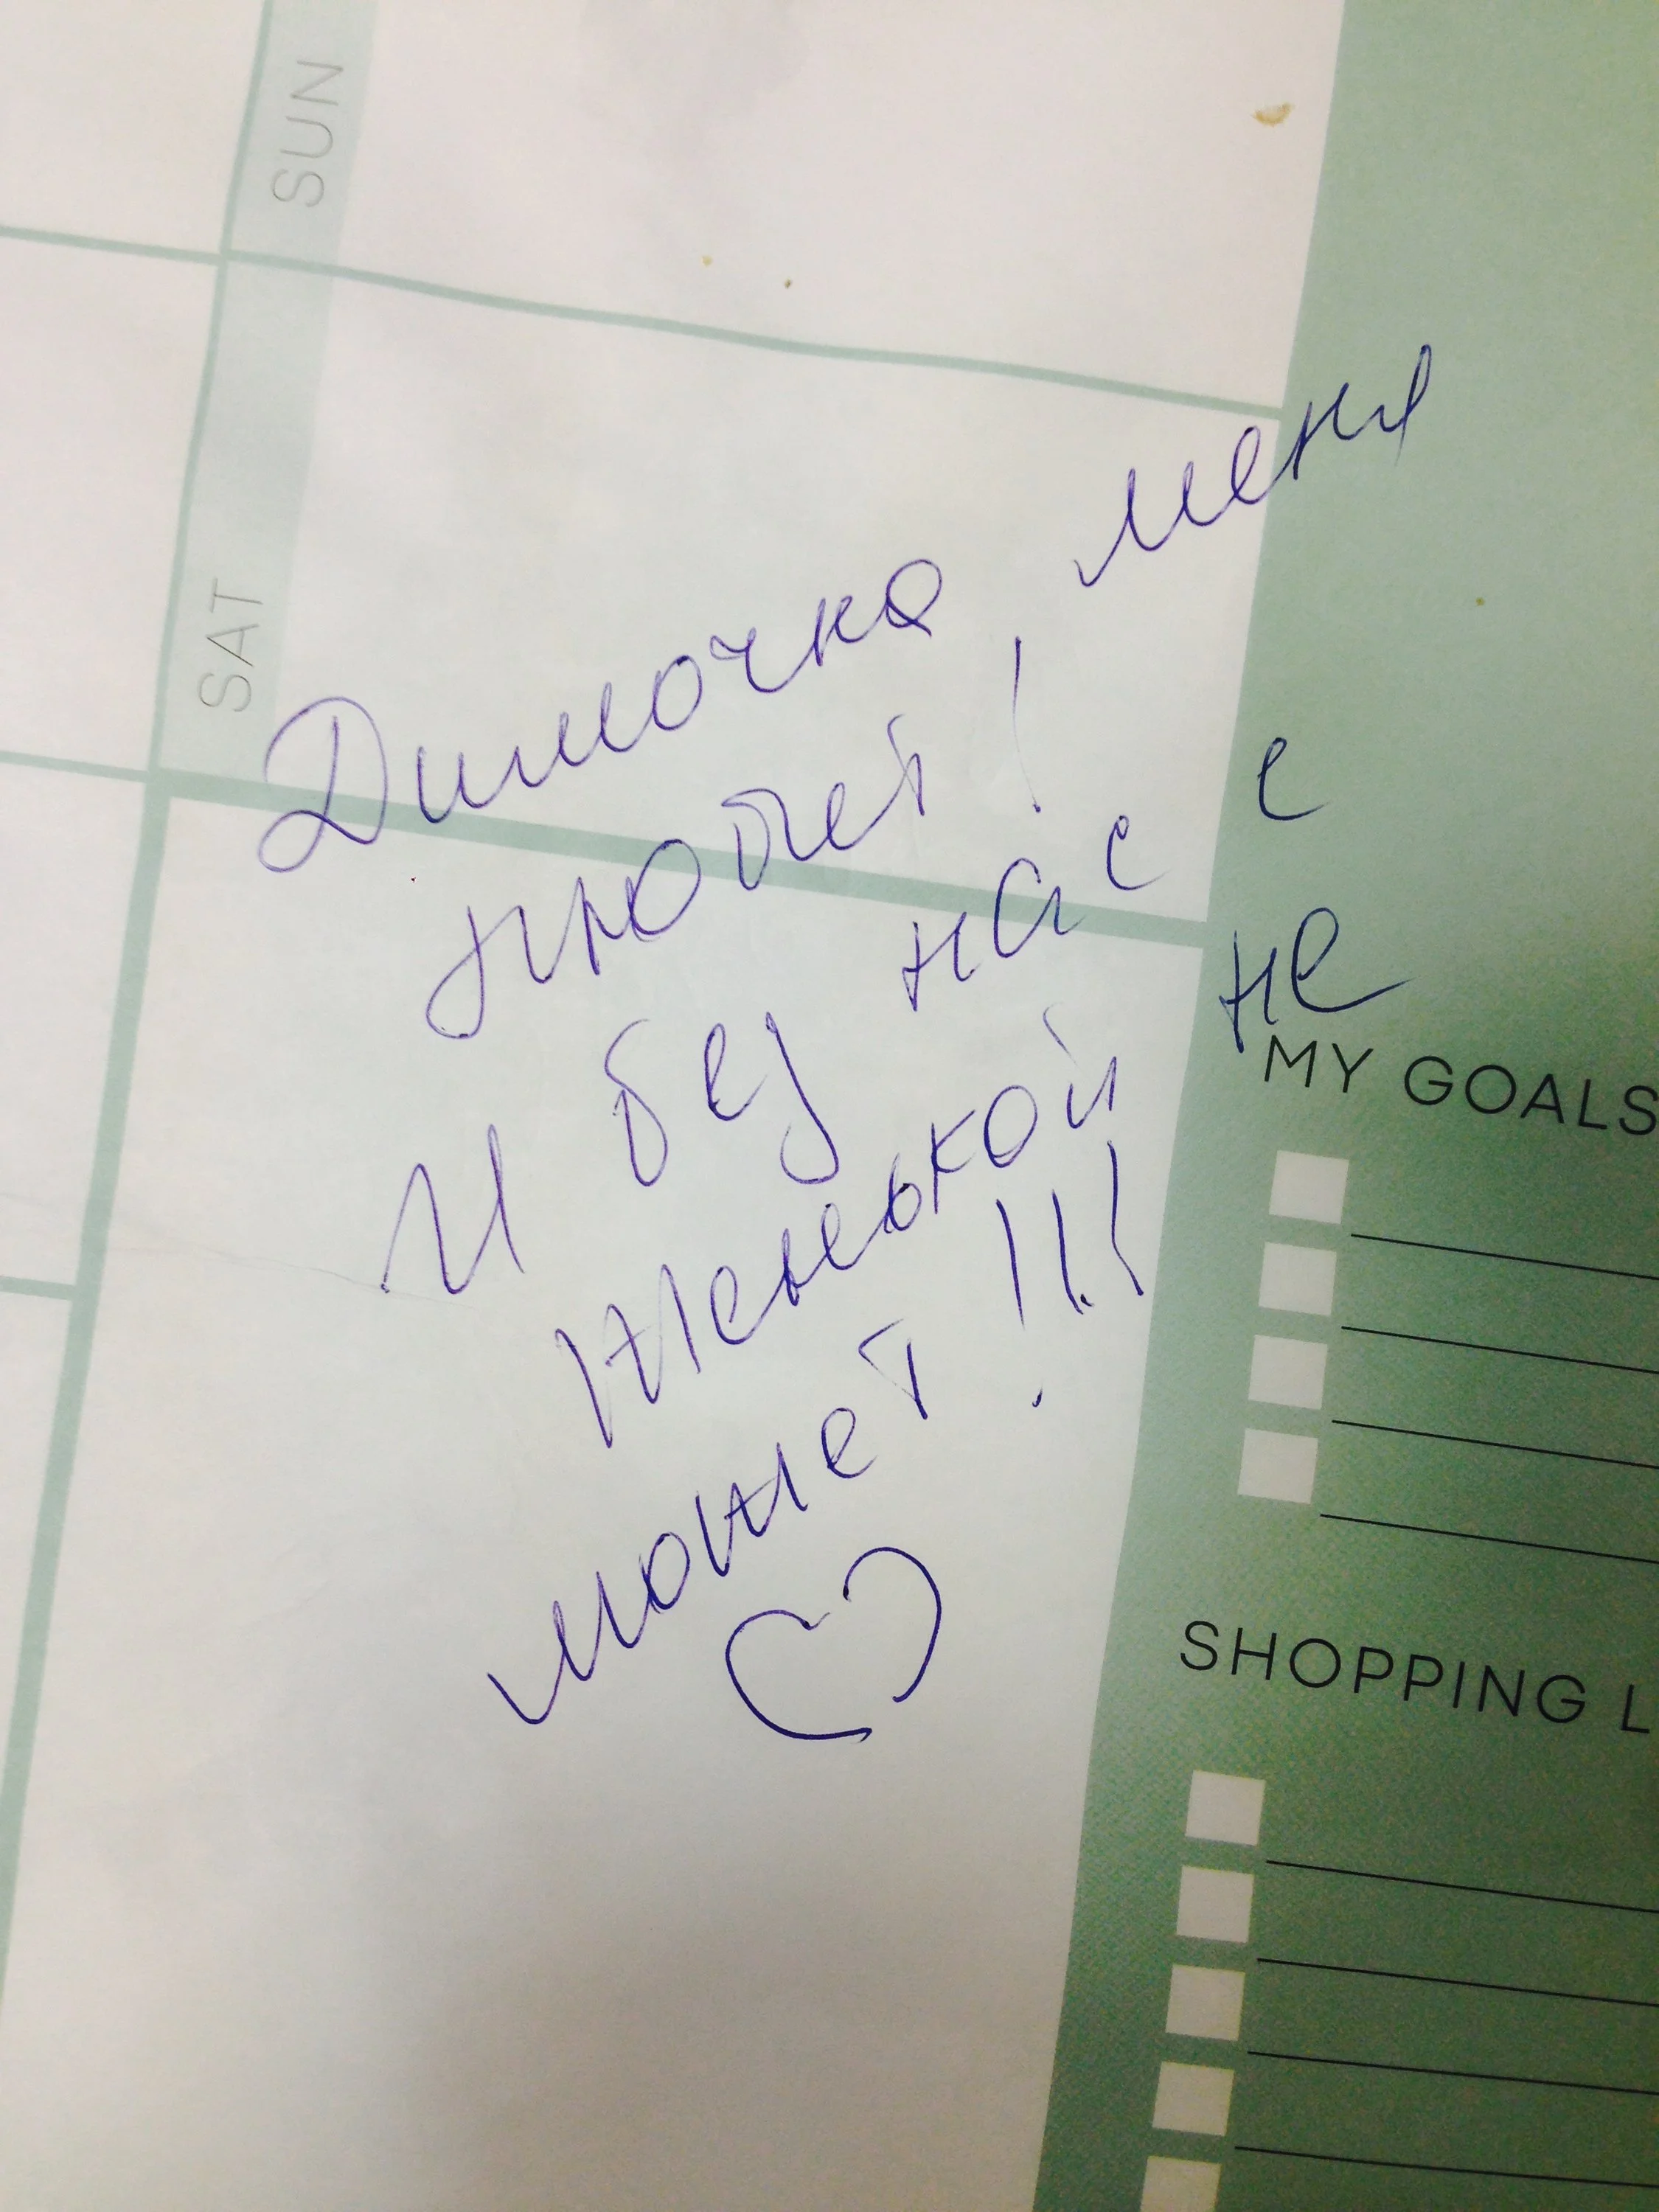 SUN
SAT
Димочка меня
любит!
И без нас с
Женькой не
может!!!
MY GOALS
SHOPPING L